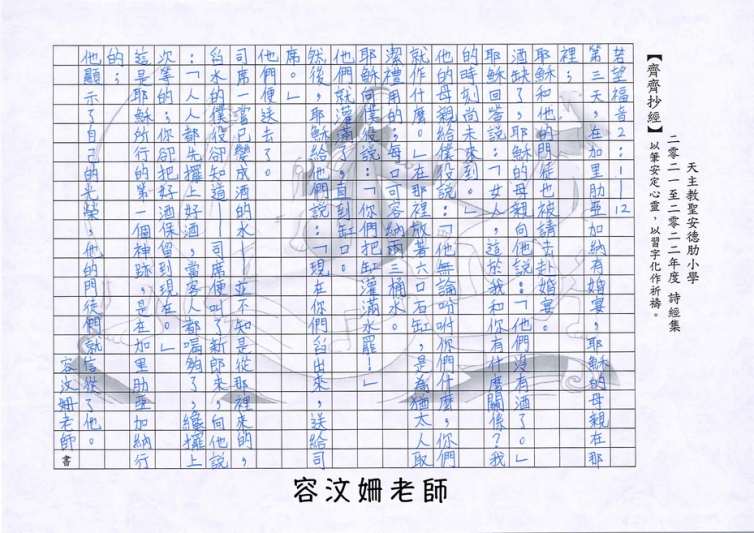 天主教聖安德肋小學
二零二一至二零二二年度 詩經集
【齊齊抄經】以筆安定心靈，以習字化作祈禱。
若望福音2:1-12
第三天，在加里肋亞加納有婚宴，耶穌的母親在那
裡；
耶穌和他的門徒也被請去赴婚宴。
酒缺了，耶穌的母親向他說：「他們沒有酒了。」
耶穌回答說：「女人，這於我和你有什麼關係？我
的時刻尚未來到。」
他的母親給僕役說：「他無論吩咐你們什麼，你們
就作什麼。」在那裡放著六口石缸，是為猶太人取
潔禮用的；每口可容納兩三桶水。
耶穌向僕役說：「你們把缸灌滿水罷！」
他們就灌滿了，直到缸口。
然後，耶穌給他們說：「現在你們舀出來，送給司
席。」
他們便送去了。
司席一嘗已變成酒的水——並不知是從那裡來的，
舀水的僕役卻知道——司席便叫了新郎來，向他說
：「人人都先擺上好酒，當客人都喝夠了，纔擺上
次等的，你卻把好酒保留到現在。」
這是耶穌所行的第一個神跡，是在加里肋亞加納行
的；
他顯示了自己的光榮，他的門徒們就信從了他。
容汶姍老師 書
容汶姍老師